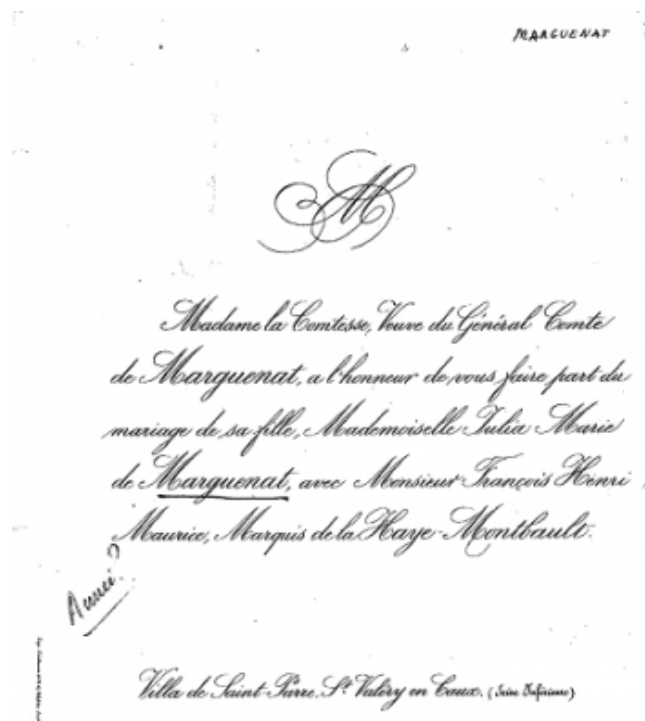 MARGUENAT
M
Madame la Comtesse, Veuve du Général Comte
de Marguenat, a l'honneur de vous faire part du
mariage de sa fille, Mademoiselle Julia Marie
de Marguenat, avec Monsieur François Henri
Maurice, Marquis de la Haye-Montbault.
Villa de Saint-Pierre, St. Valéry en Caux, (Seine Inférieure)